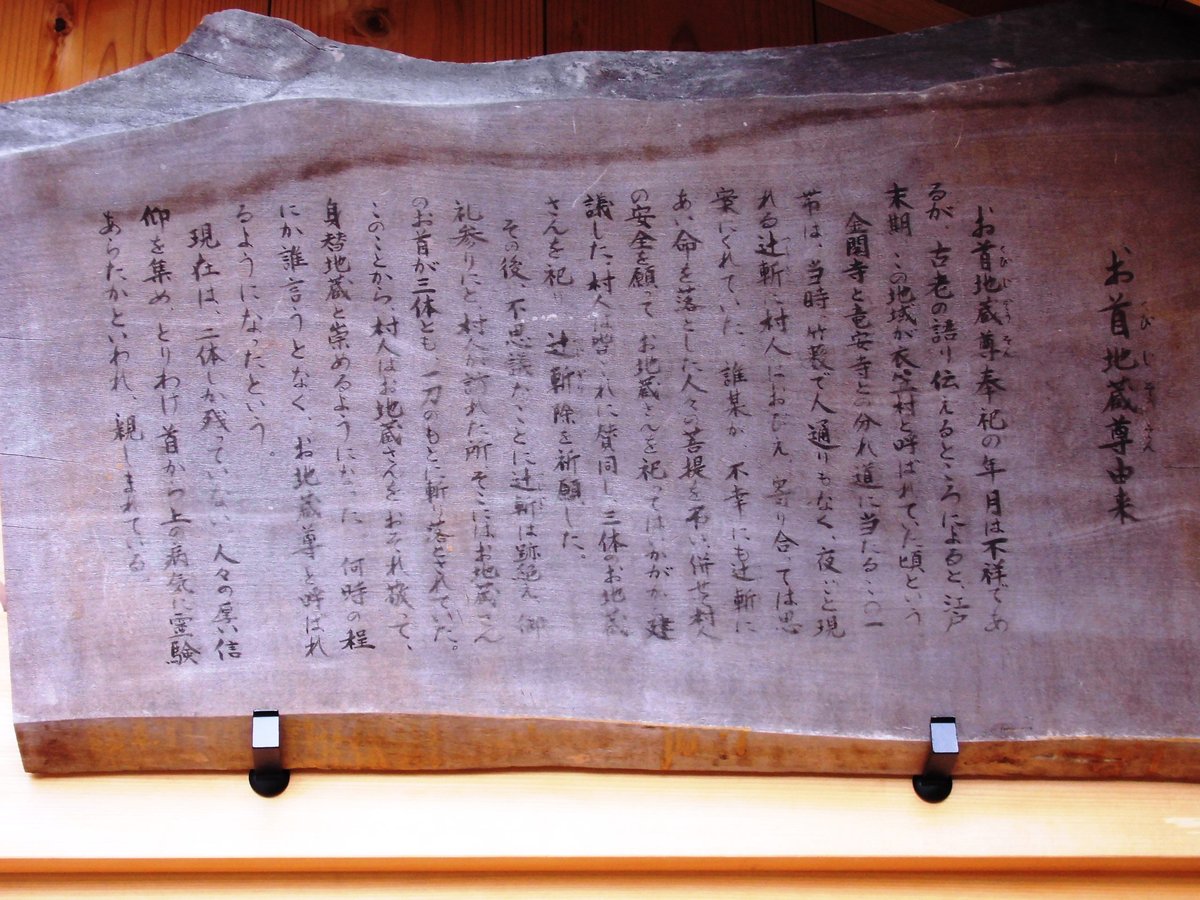 お首地蔵尊由来
くび じぞう そん
お首地蔵尊奉祀の年月は不祥であ
くび じぞう そん
るが、古老の語り伝えるところによると、江戸
末期 この地域が衣笠村と呼ばれていた頃という
金閣寺と竜安寺との分れ道に当たるこの一
帯は、当時 竹薮で人通りもなく、夜ごと現
れる辻斬に村人はおびえ、寄り合ては思
案にくれていた。誰某が、不幸にも辻斬に
あい命を落とした人々の菩提を弔い、併せ村人
の安全を願って お地蔵さんを祀ってはいかがか 建
議した。村人は皆これに賛同し、三体のお地蔵
さんを祀り 辻斬除を祈願した。
その後、不思議なことに辻斬は跡絶え 御
礼参りにと、村人が訪れた所 そこにはお地蔵さん
のお首が三体とも、一刀のもとに斬り落とされていた。
このことから、村人はお地蔵さんをおそれ敬って、
身替地蔵と崇めるようになった 何時の程
にか誰言うとなく、お地蔵尊と呼ばれ
るようになったという。
現在は、二体しか残っていない 人々の厚い信
仰を集め、とりわけ首から上の病気に霊験
あらたかといわれ、親しまれている